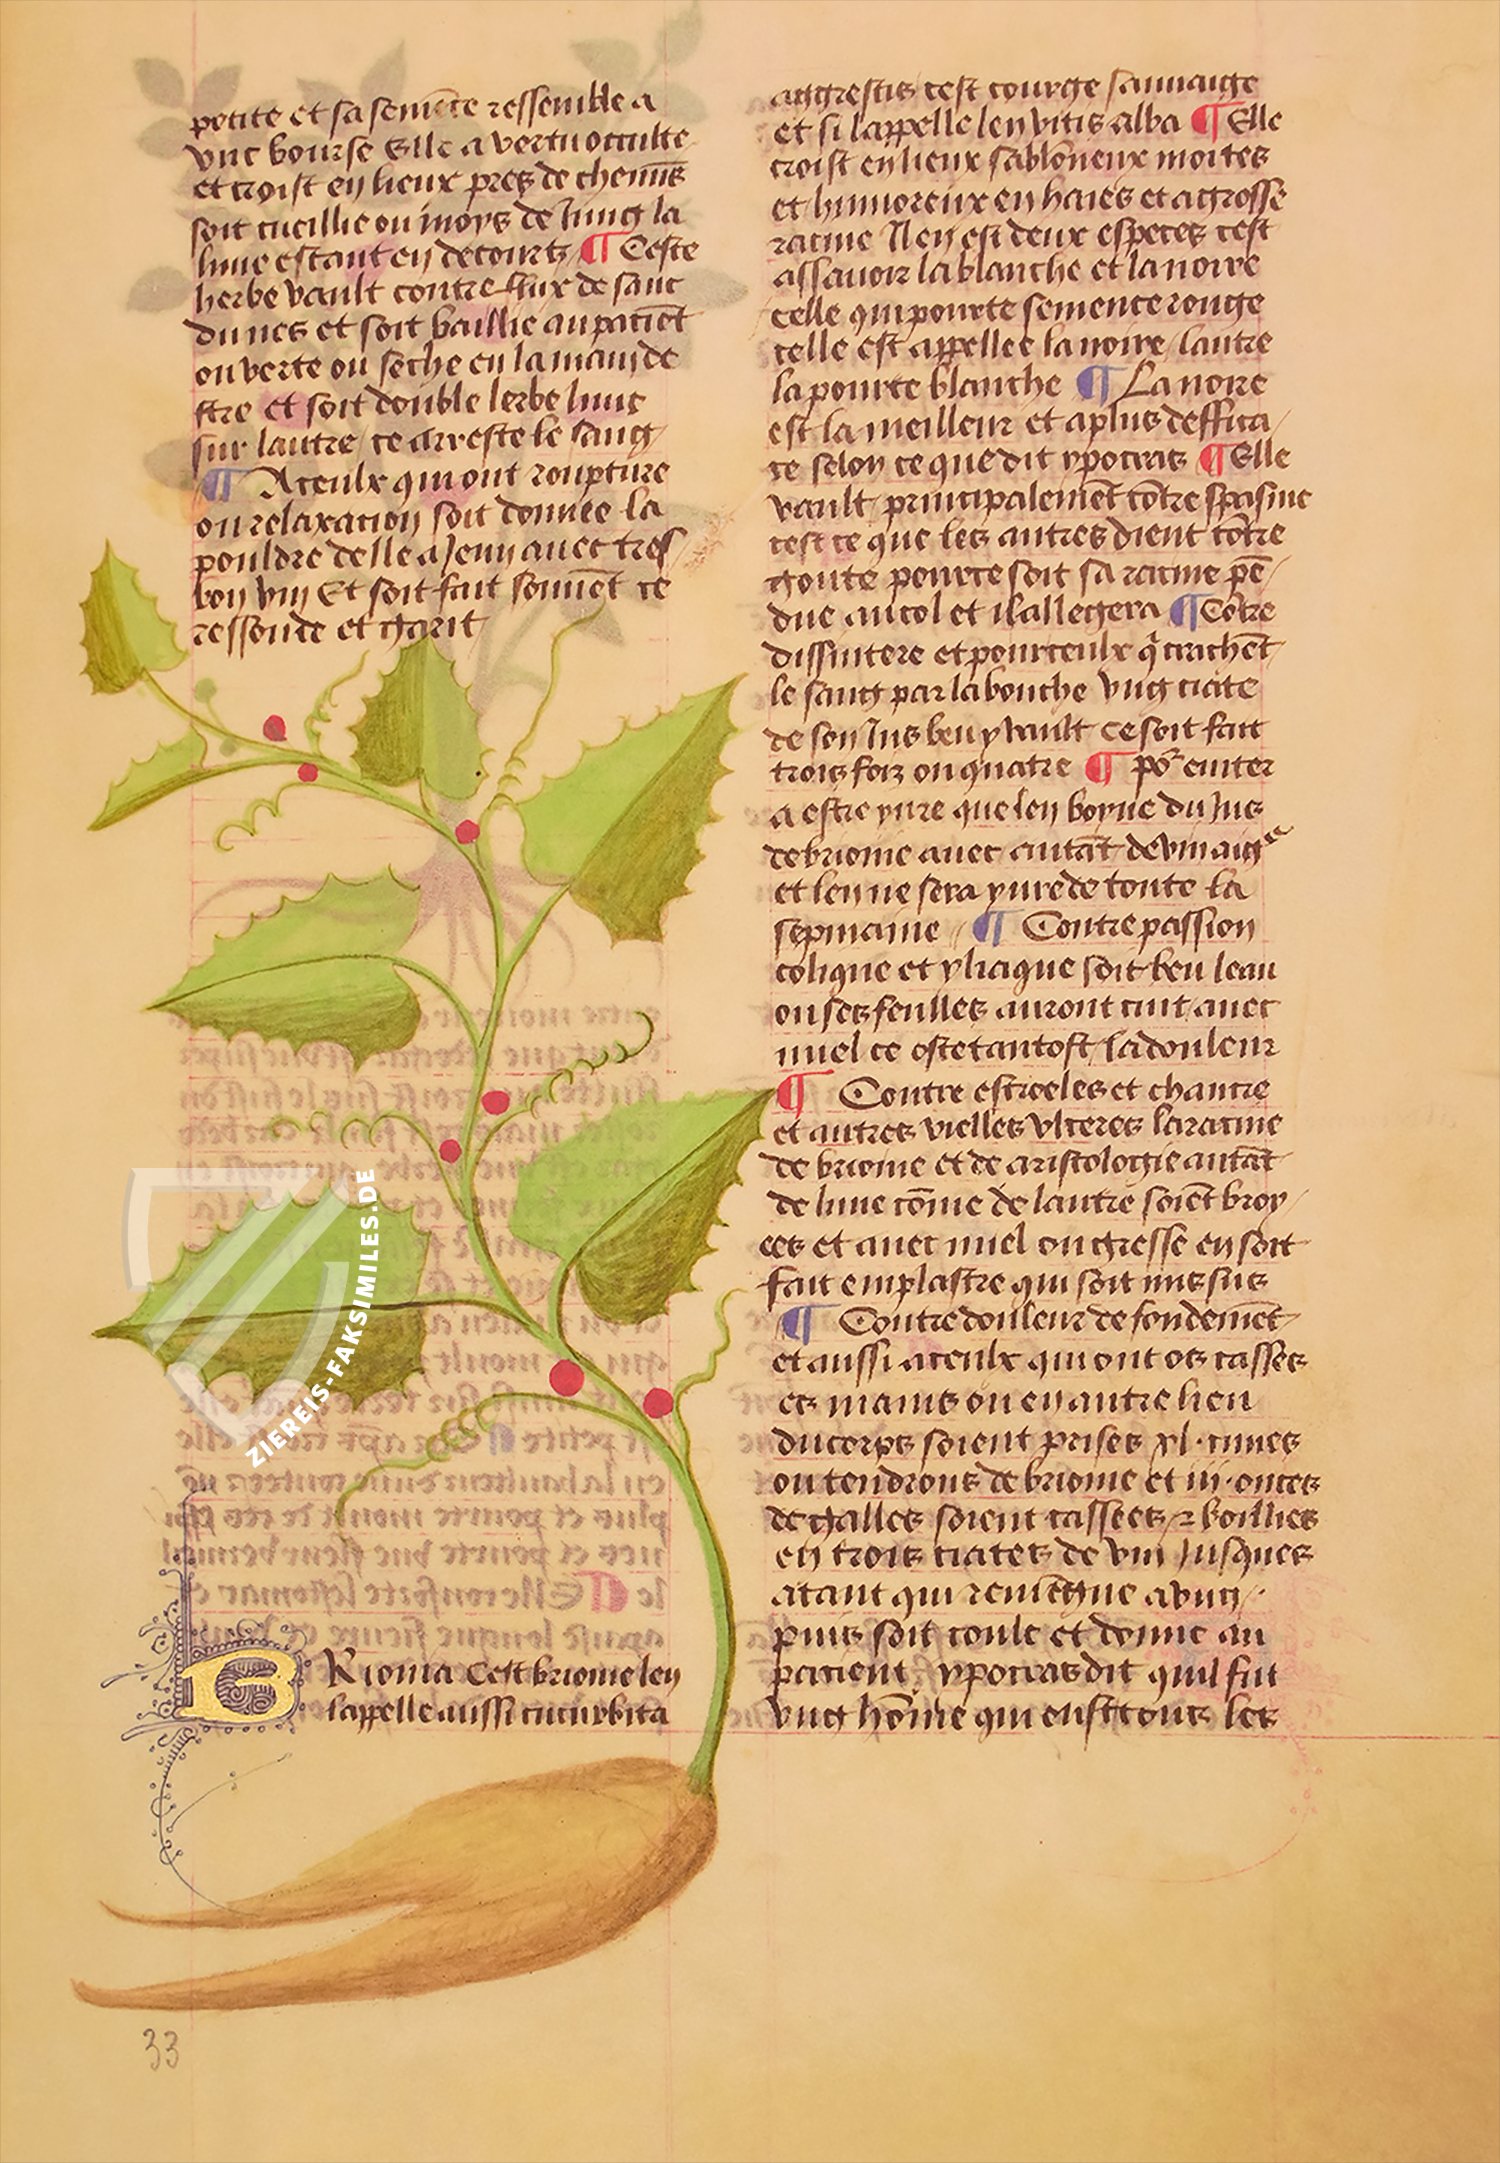 petite et sa semēce ressemble a
vne bourse Elle a vertu occulte
et croist en lieux pres de chemīs
soit cueillie ou moys de Iung la
lune estant en decours ¶ Ceste
herbe vault contre flux de sanc
du nes et soit baillie au paciēt
ou verte ou seche en la main de
stre et soit double lerbe lune
sur lautre / ce arreste le sang
¶ A ceulx qui ont roupture
ou relaxacion soit donnee la
pouldre delle a Jeun auec tres /
bon vin Et soit fait souuēt ce
ressoude et garit
BRionia Cest brionie len
lappelle aussi cucurbita
aggrestis cest courge sauuaige
et si lappelle len vitis alba ¶ Elle
croist en lieux sablōneux moites
et humoreux en haies et a grosse
racine Il en est deux especes cest
assauoir la blanche et la noire
celle qui pourte semence rouge
celle est appellee la noire / lautre
la pourte blanche ¶ La noire
est la meilleur et a plus deffica /
ce selon ce que dit ypocras ¶ Elle
vault principalemēt cōtre spasme
cest ce que les autres dient cōtre
goute pourte soit sa racine pē /
due au col et il allegera ¶ Cōtre
dissintere et pour ceulx q̄ crachēt
le sang par la bouche vng ciate
de son Jus beu y vault ce soit fait
trois foiz ou quatre ¶ po͛ euiter
a estre yure que len boyue du Jus
de brionie auec autāt de vinaigᵉ
et len ne sera yure de toute la
sepmaine // ¶ Contre passion
colique et yliaque soit beu leau
ou ses feulles auront cuit auec
miel ce oste tantost la douleur
¶ Contre estroeles et chancre
et autres vielles vlceres la racine
de brionie et de aristologie autāt
de lune cōme de lautre soiēt broy /
ees et auec miel ou gresse en soit
fait emplastre qui soit mis sus
¶ Contre douleur de fondemēt
et aussi a ceulx qui ont os casses
es mains ou en autre lieu
du corps soient prises xl · cimes
ou tendrons de brionie et iii · onces
de galles soient cassees ⁊ boillies
en trois ciates de vin Jusques
a tant qui reuiēgne a vng / ·
puis soit coule et donne au
pacient / ypocras dit quil fut
vng hōme qui eust tous les
33
ZIEREIS-FAKSIMILES.DE